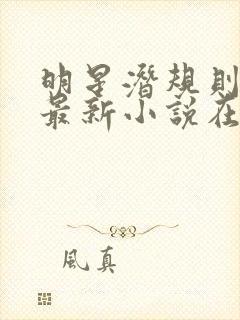 明星潛規則
最新小說在
風真